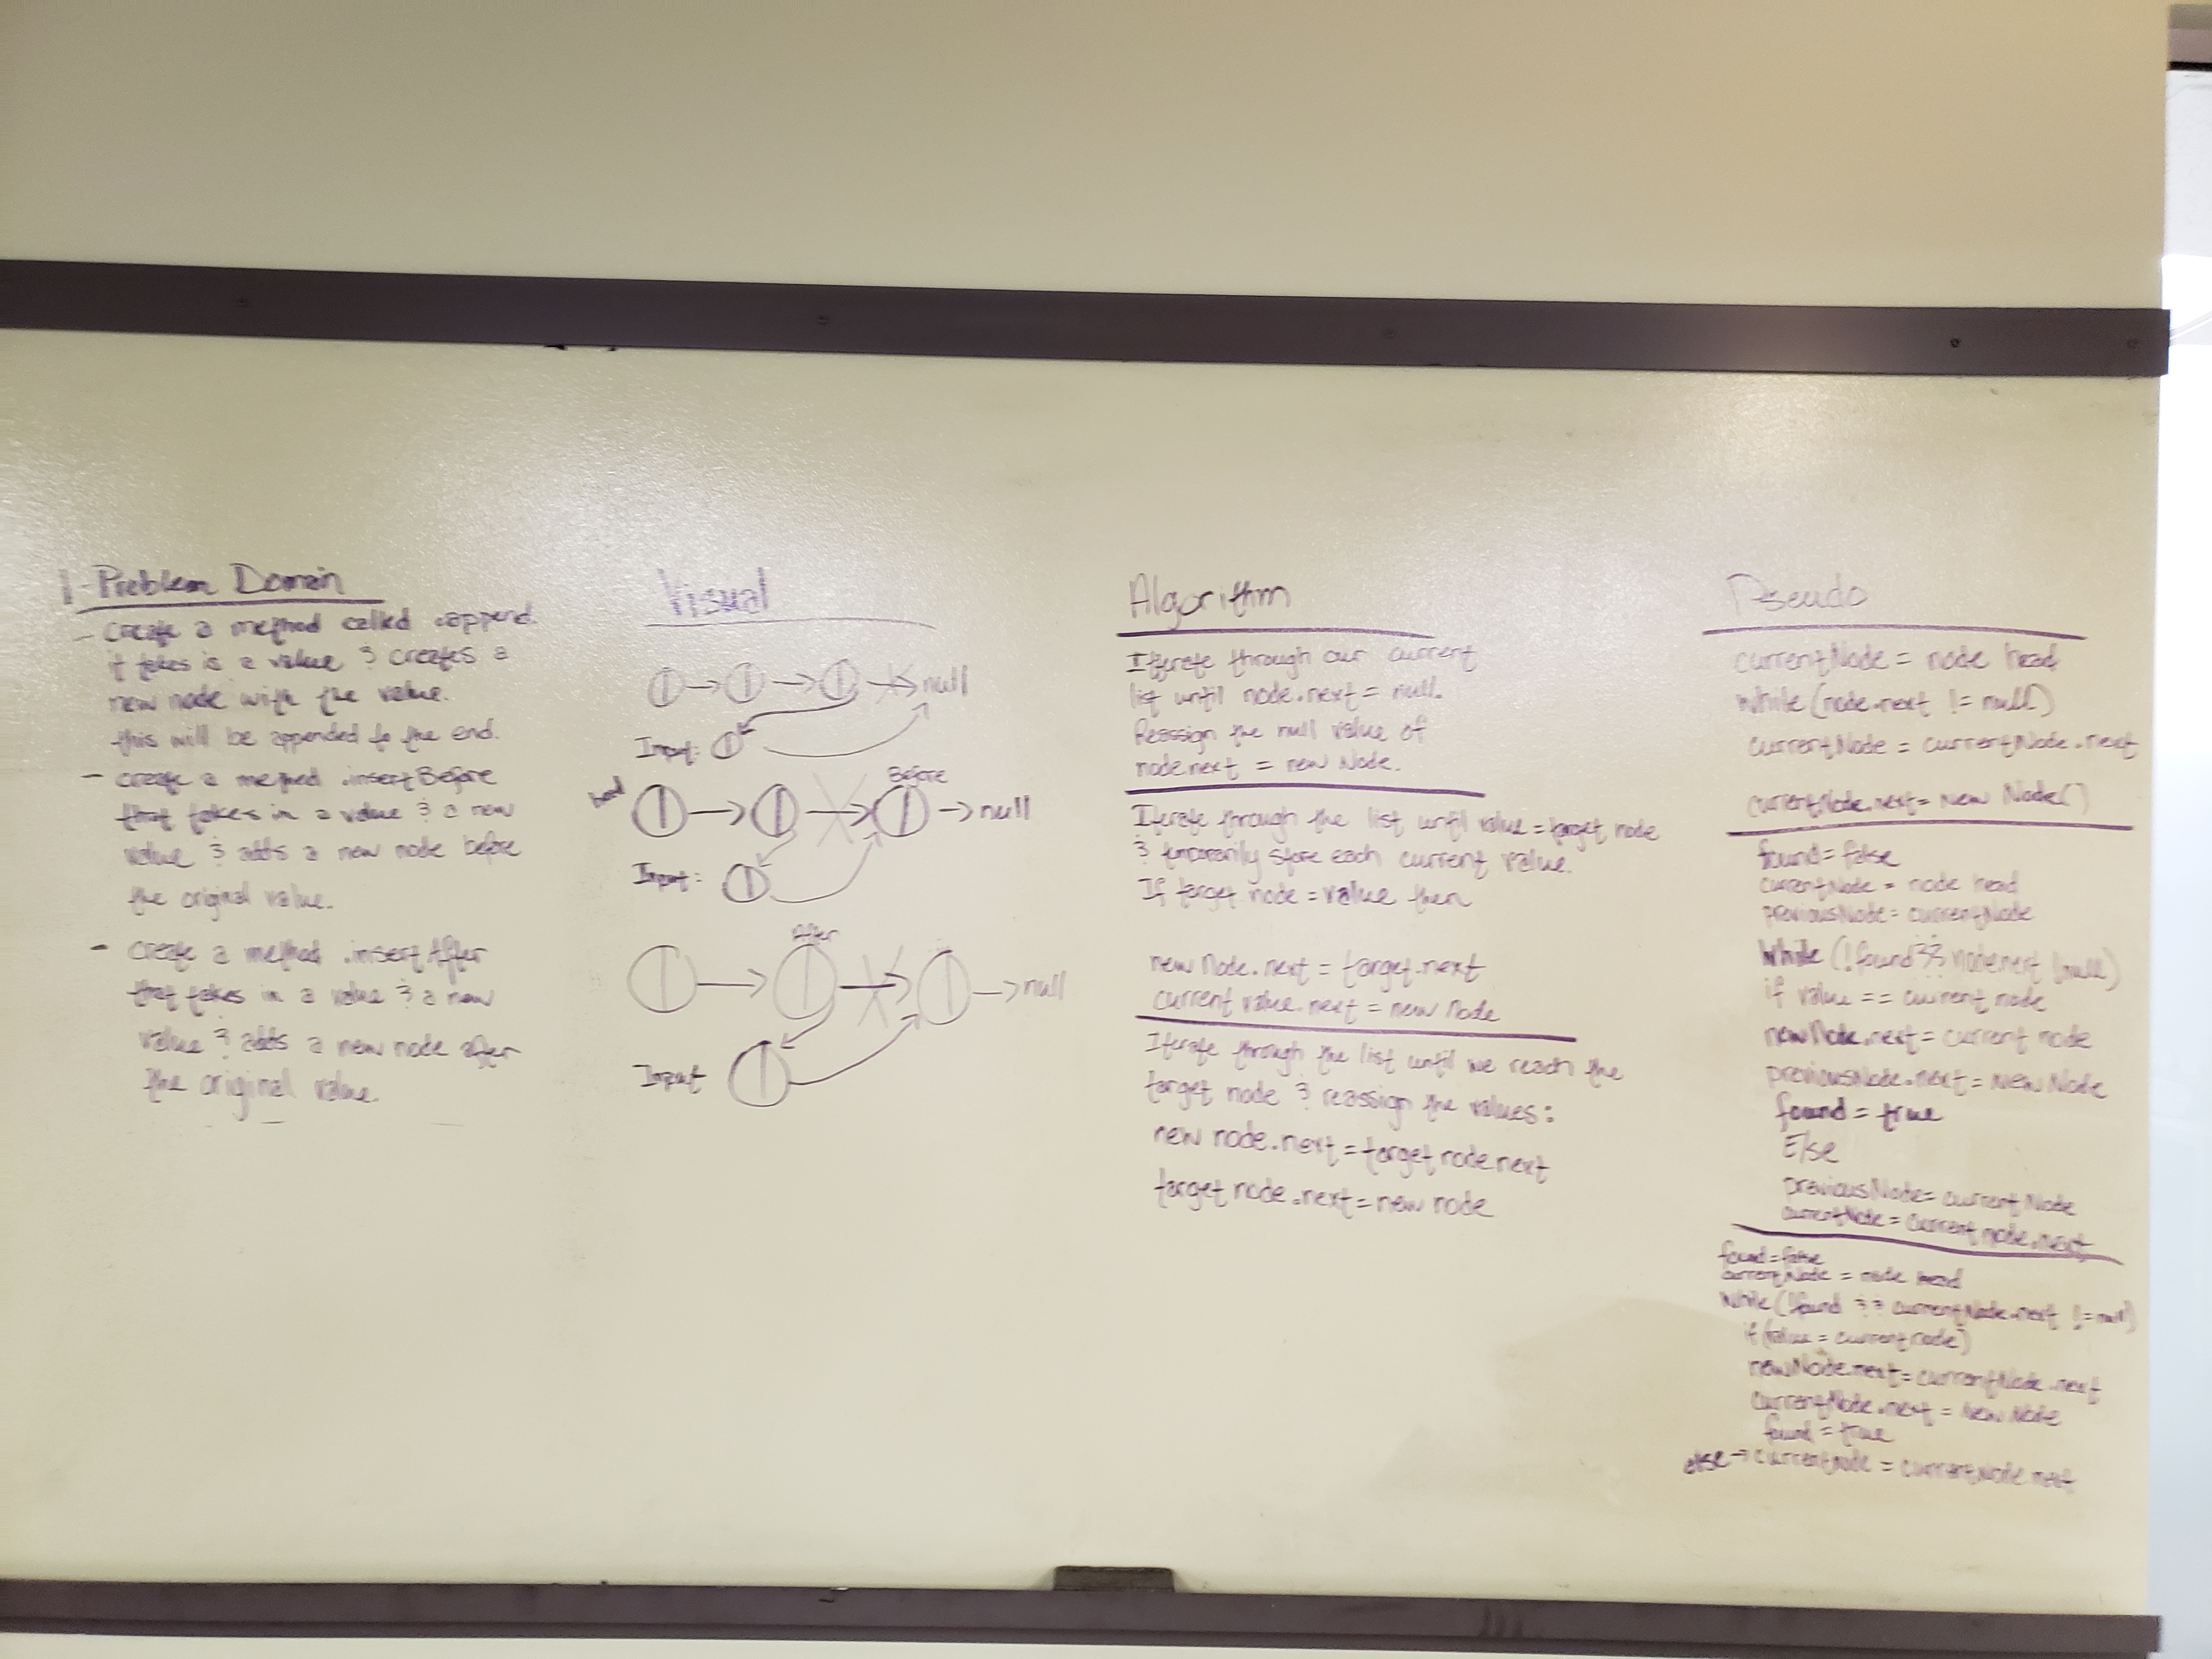 1- Problem Domain
- Create a method called .append.
it takes is a value & creates a
new node with the value.
this will be appended to the end.
- create a method .insertBefore
that takes in a value & a new
value & adds a new node before
the original value.
- create a method .insertAfter
that takes in a value & a new
value & adds a new node after
the original value.
Visual
null
Input:
head
Before
null
Input:
After
null
Input
Algorithm
Iterate through our current
list until node.next = null.
Reassign the null value of
node.next = new Node.
Iterate through the list until value = target node
& temporarily store each current value.
If target node = value then
new Node.next = target.next
current value.next = new Node
Iterate through the list until we reach the
target node & reassign the values:
new node.next = target node.next
target node.next = new node
Pseudo
currentNode = node head
while (node.next != null)
currentNode = currentNode.next
currentNode.next = new Node()
found = false
currentNode = node head
previousNode = currentNode
While (!found && node.next !null)
if value == current node
newNode.next = current node
previousNode.next = new Node
found = true
Else
previousNode = current Node
currentNode = current node.next
found = false
currentNode = node head
While (!found && currentNode.next != null)
if (value = current node)
newNode.next = currentNode.next
currentNode.next = new Node
found = true
else → currentNode = currentNode.next